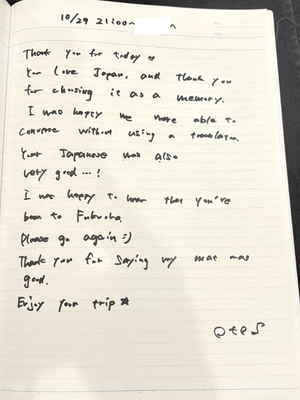 10/29 21:00~
Thank you for today
You love Japan, and thank you
for choosing it as a memory.
I was happy we were able to
converse without using a translator.
Your Japanese was also
very good...!
I was happy to hear that you've
been to Fukuoka.
Please go again :)
Thank you for saying my mat was
good.
Enjoy your trip ★